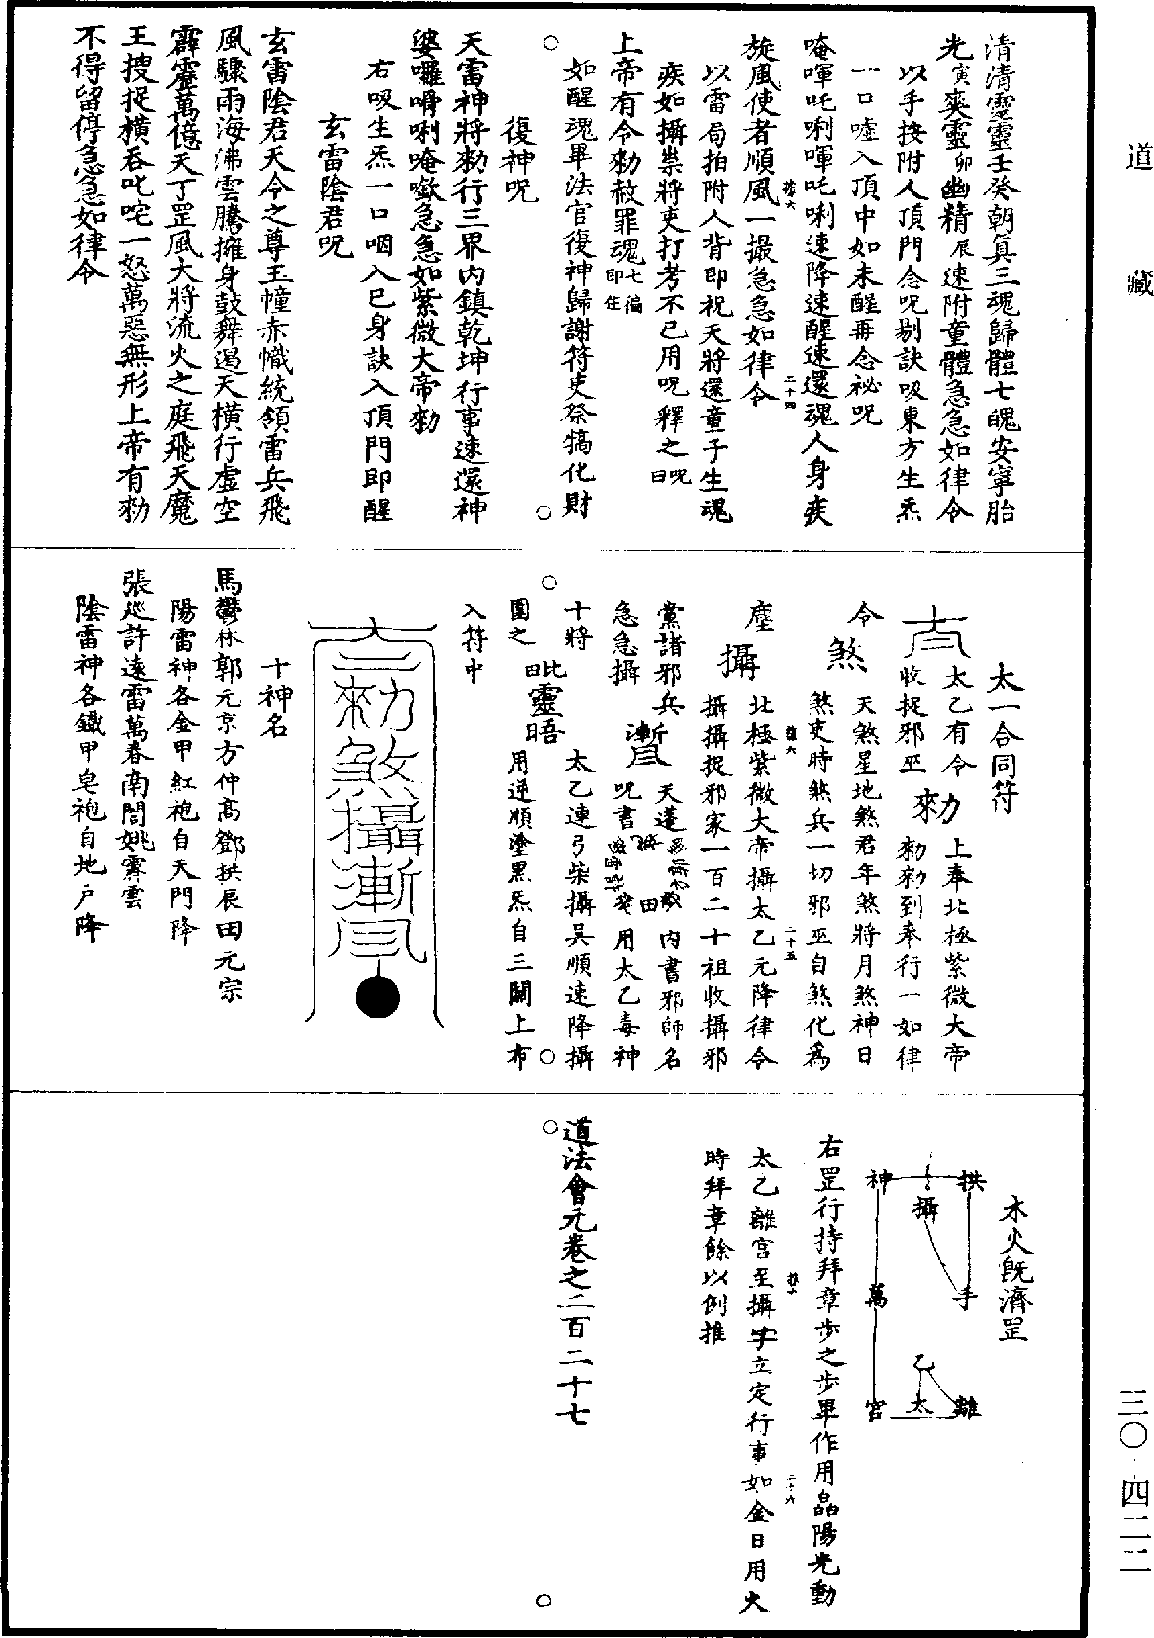 道藏
三〇·四二二
清清靈靈壬癸朝真三魂歸體七魄安寧胎
光寅爽靈卯幽精辰速附童體急急如律令
以手按附人頂門念呪剔訣吸東方生炁
一口噓入頂中如未醒再念祕呪
唵㖷吒唎㖷吒唎速降速醒速還魂人身疾
旋風使者順風一撮急急如律令
以雷局拍附人背即祝天將還童子生魂
疾如攝祟將吏打考不已用呪釋之呪曰
上帝有令勑赦罪魂七徧即住
如醒魂畢法官復神歸謝符吏祭犒化財
復神呪
天雷神將勑行三界內鎮乾坤行事速還神
婆囉嗗唎唵㘕急急如紫微大帝勑
右吸生炁一口咽入己身訣入頂門即醒
玄雷陰君呪
玄雷陰君天令之尊玉幢赤幟統領雷兵飛
風驟雨海沸雲騰擁身鼓舞遏天橫行虛空
霹靂萬億天丁罡風大將流火之庭飛天魔
王搜捉橫吞叱咤一怒萬惡無形上帝有勑
不得留停急急如律令
太一合同符
太乙有令上奉北極紫微大帝
收捉邪巫勑勑勑到奉行一如律
令天煞星地煞君年煞將月煞神日
煞煞吏時煞兵一切邪巫自煞化為
塵北極紫微大帝攝太乙元降律令
攝攝攝捉邪家一百二十祖收攝邪
黨諸邪兵天蓬內書邪師名
急急攝呪書用太乙毒神
十將太乙連弓柴攝吳順速降攝
靈晤
圍之用逆順塗黑炁自三關上布
入符中
十神名
馬鬱林郭元京方仲高鄧拱辰田元宗
陽雷神各金甲紅袍自天門降
張巡許遠雷萬春南霽雲
陰雷神各鐵甲皂袍自地戶降
木火既濟罡
神 拱
攝
萬 手
乙
宮 太 離
右罡行持拜章步之步畢作用晶陽光動
太乙離宮至攝字立定行事如金日用火
時拜章餘以例推
道法會元卷之二百二十七